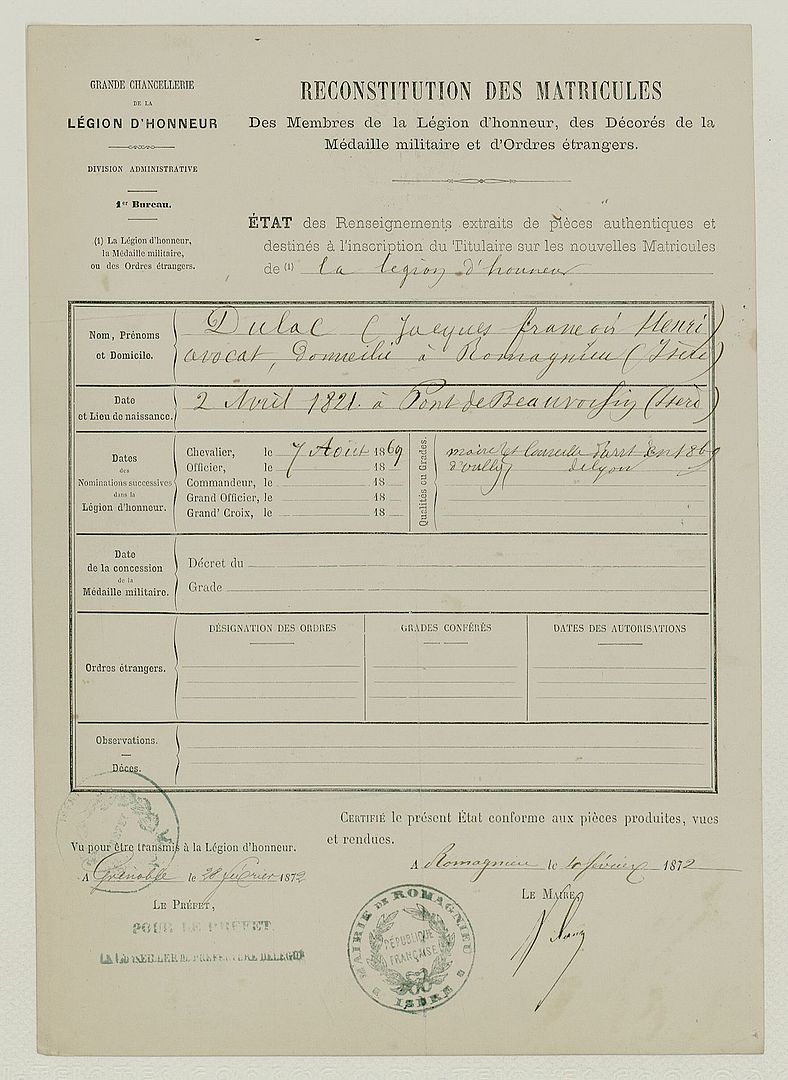 GRANDE CHANCELLERIE
DE LA
LÉGION D'HONNEUR
DIVISION ADMINISTRATIVE
1er Bureau.
(1) La Légion d'honneur,
la Médaille militaire,
ou des Ordres étrangers.
RECONSTITUTION DES MATRICULES
Des Membres de la Légion d'honneur, des Décorés de la
Médaille militaire et d'Ordres étrangers.
ÉTAT des Renseignements extraits de pièces authentiques et
destinés à l'inscription du Titulaire sur les nouvelles Matricules
de (1) la legion d'honneur
Nom, Prénoms
et Domicile.
Dulac (Jacques francois Henri)
avocat, domicilié à Romagnieu (Isère)
Date
et Lieu de naissance.
2 Avril 1821. à Pont de Beauvoisin (Isère)
Dates
des
Nominations successives
dans la
Légion d'honneur.
Chevalier, le 7 Août 1869
Officier, le 18
Commandeur, le 18
Grand Officier, le 18
Grand' Croix, le 18
Qualités ou Grades.
maire et Conseille d'arrt en 1869
d'oully de lyon
Date
de la concession
de la
Médaille militaire.
Décret du
Grade
Ordres étrangers.
DÉSIGNATION DES ORDRES
GRADES CONFÉRÉS
DATES DES AUTORISATIONS
Observations.
Décès.
CERTIFIÉ le présent État conforme aux pièces produites, vues
et rendues.
A Romagnieu le 10 février 1872
Le Maire,
Vu pour être transmis à la Légion d'honneur.
A Grenoble le 28 fevrier 1872
Le Préfet,
POUR LE PRÉFET.
LE CONSEILLER DE PRÉFECTURE DÉLÉGUÉ
MAIRIE DE ROMAGNIEU
RÉPUBLIQUE
FRANÇAISE
ISÈRE